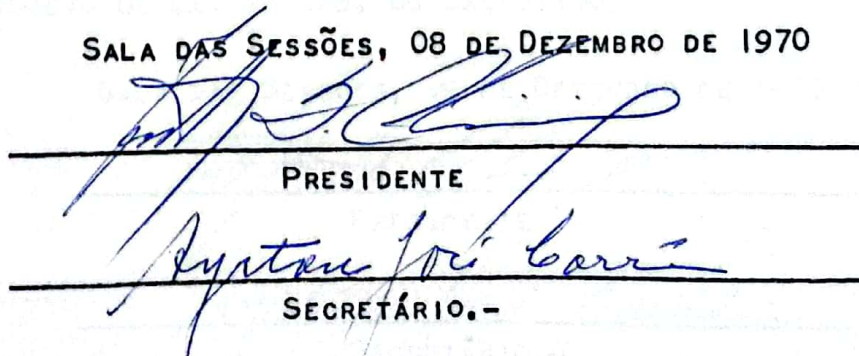 SALA DAS SESSÕES, 08 DE DEZEMBRO DE 1970
PRESIDENTE
Ayrton José
SECRETÁRIO.-